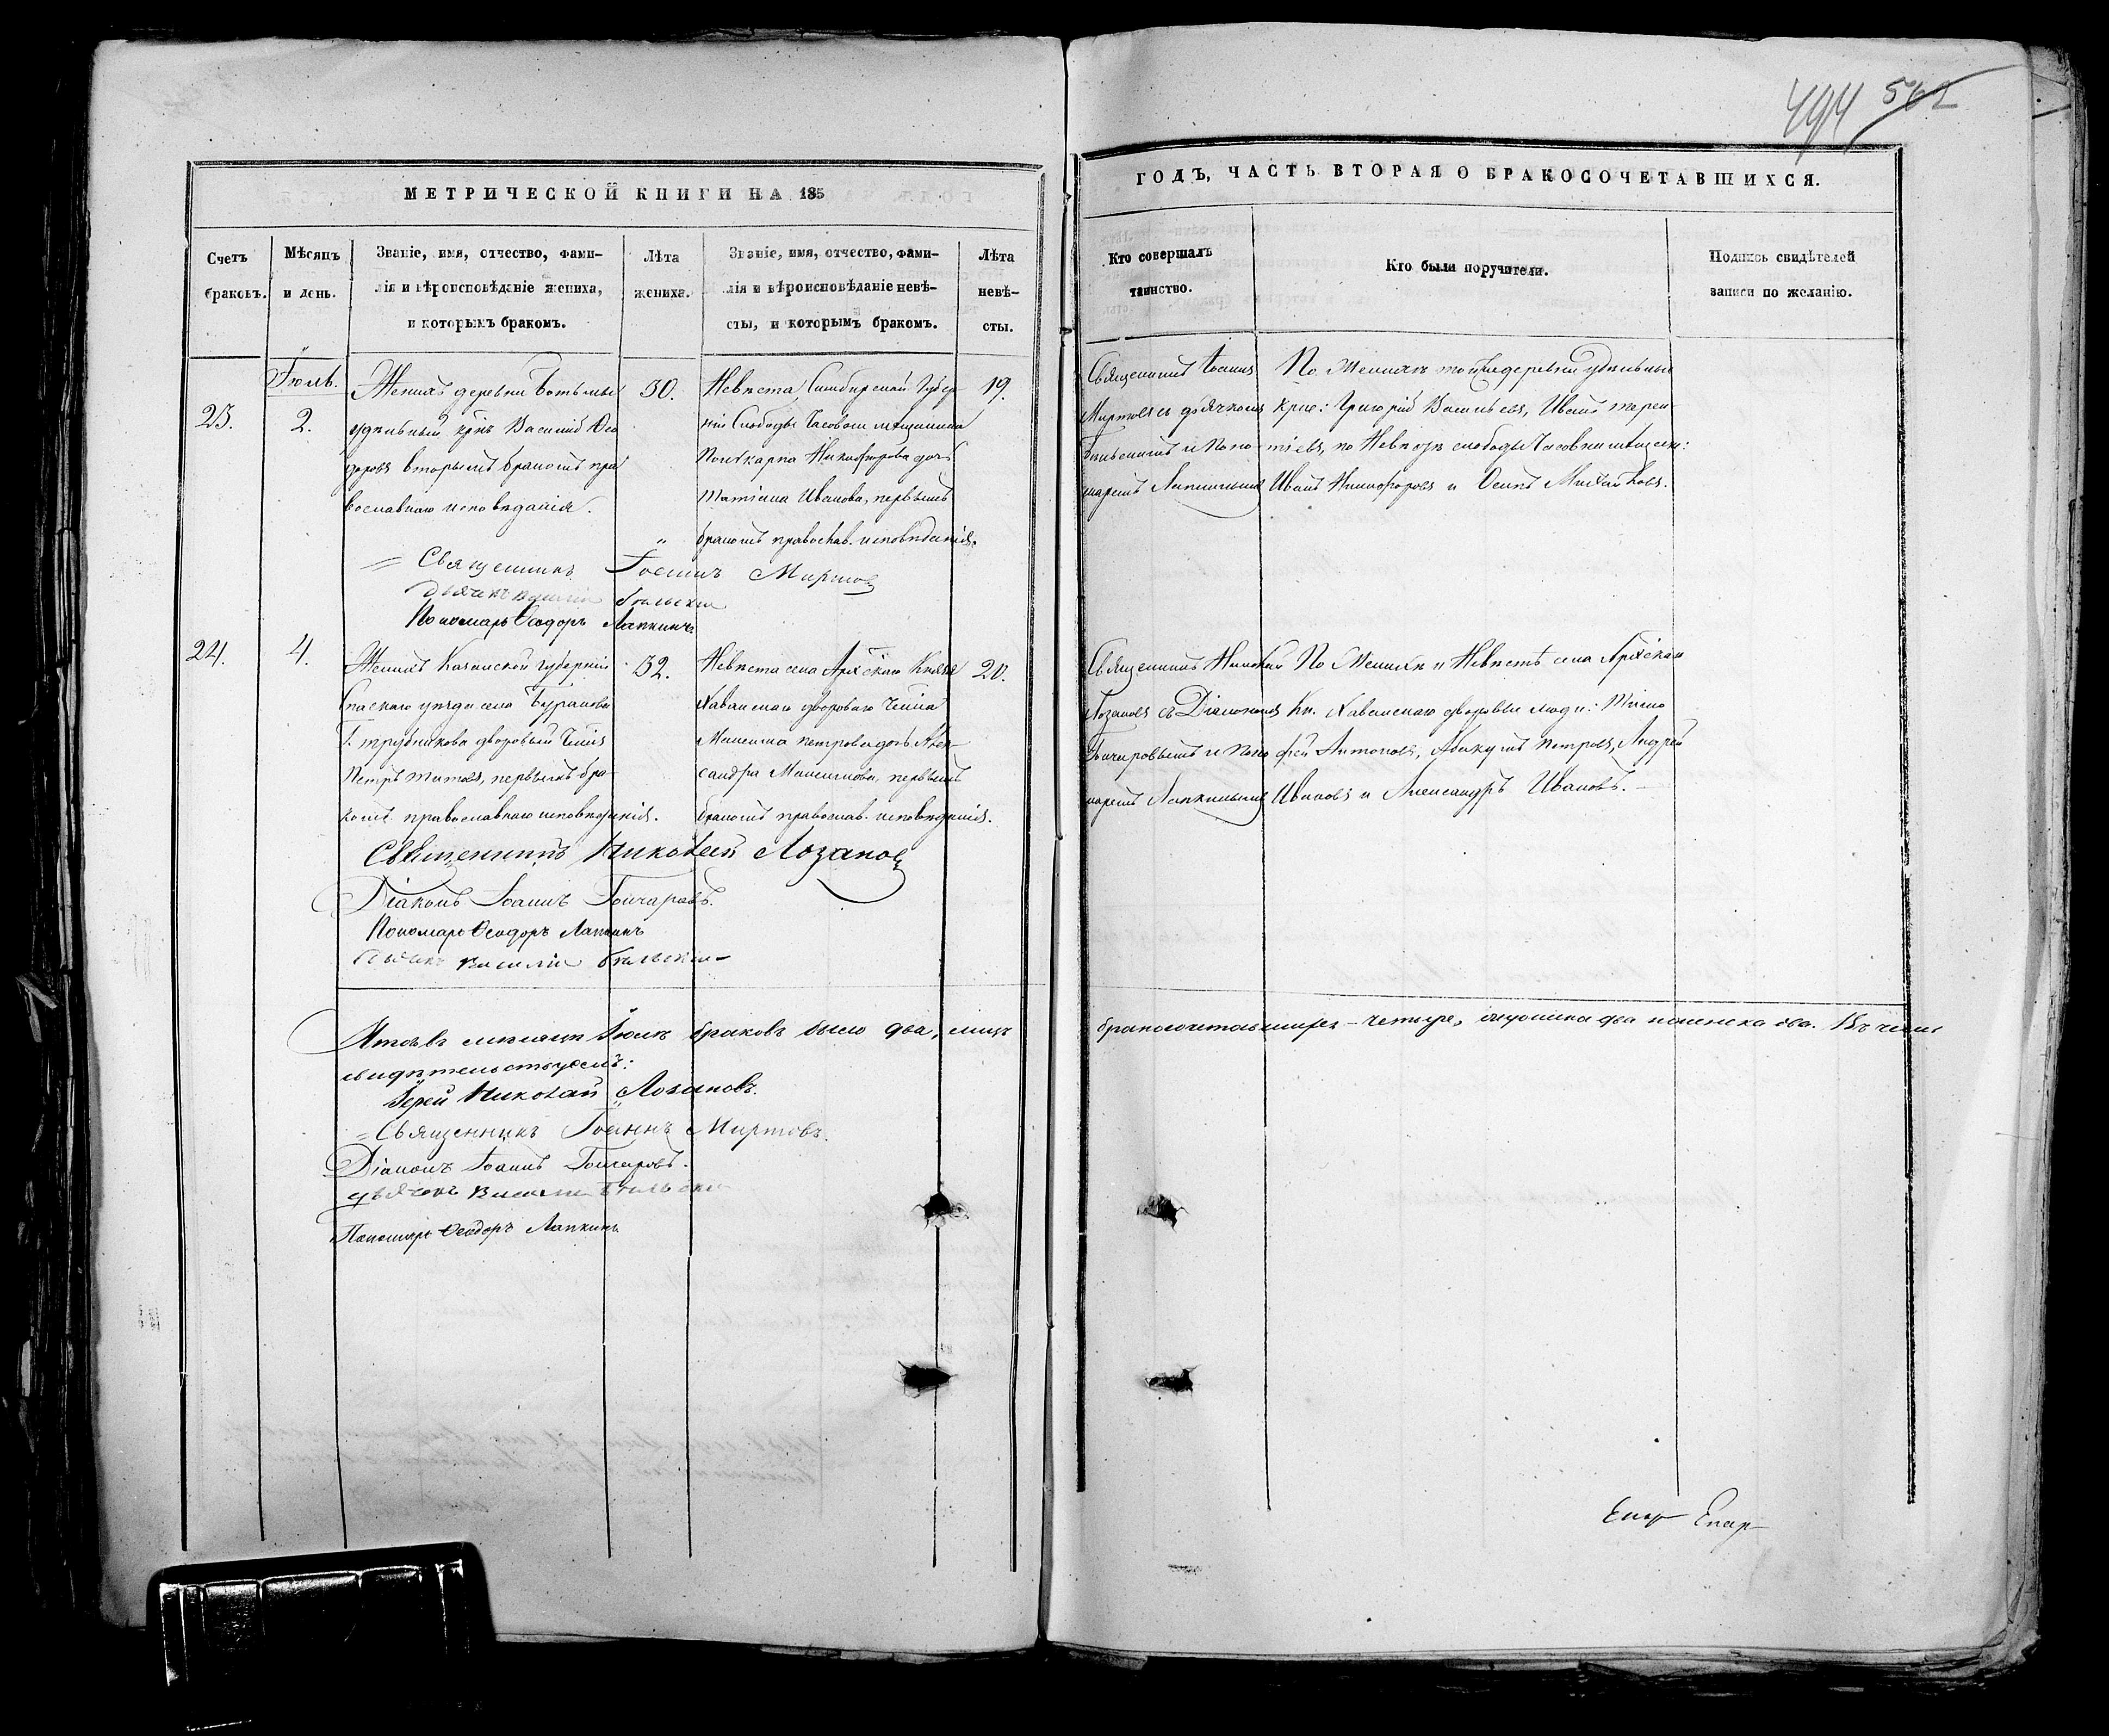 494 562
МЕТРИЧЕСКОЙ КНИГИ НА 185
ГОДЪ, ЧАСТЬ ВТОРАЯ О БРАКОСОЧЕТАВШИХСЯ.
Счетъ браковъ.
Мѣсяцъ и день.
Званіе, имя, отчество, фами-
лія и вѣроисповѣданіе жениха,
и которымъ бракомъ.
Лѣта
жениха.
Званіе, имя, отчество, фами-
лія и вѣроисповѣданіе невѣ-
сты, и которымъ бракомъ.
Лѣта
невѣ-
сты.
Кто совершалъ
таинство.
Кто были поручители.
Подпись свидѣтелей
записи по желанію.
Іюль.
23.
2.
Женихъ деревни Ботьмы
удѣльный крнъ Василій Ѳео
доровъ вторымъ бракомъ пра
вославнаго исповѣданія.
30.
Невѣста Симбирской Губер
ніи Слободы Часовни мѣщанина
Поликарпа Никифорова дочь
Татіана Иванова, первымъ
бракомъ православ. исповѣданія.
19.
Священникъ Іоаннъ
Миртовъ съ дьячкомъ
Бѣльскимъ и Поно
маремъ Лапкинымъ
По Женихѣ той же деревни удѣльные
крес: Григорій Васильевъ, Иванъ Терен-
тіевъ, по Невѣстѣ слободы Часовни мѣщане:
Иванъ Никифоровъ и Осипъ Михайловъ.
Священникъ Іоаннъ Миртовъ
Дьячекъ Василій Бѣльскій
Пономарь Ѳеодоръ Лапкинъ
24.
4.
Женихъ Казанской губерніи
Спаскаго уѣзда села Бураковки
Г. Трубникова дворовый Чел.
Петръ Титовъ, первымъ бра-
комъ православнаго исповѣданія.
32.
Невѣста села Архангскаго Князя
Хованскаго двороваго Чел.
Максима Петрова дочь Алек-
сандра Максимова, первымъ
бракомъ православ. исповѣданія.
20.
Священникъ Николай
Лозановъ съ Діакономъ
Гончаровымъ и Поно
маремъ Лапкинымъ
По Женихѣ и Невѣстѣ села
Кн. Хованскаго дворовые люди: Тимо
фей Антоновъ, Абакумъ Петровъ, Андрей
Ивановъ и Александръ Ивановъ.
Священникъ Николай Лозановъ
Діаконъ Іоаннъ Гончаровъ.
Пономарь Ѳеодоръ Лапкинъ
Дьячекъ Василій Бѣльскій
Итого въ мѣсяцѣ Іюлѣ браковъ было два, лицъ бракосочетавшихся – четыре, жениха два невѣста два. Въ чемъ
свидѣтельствуемъ:
Іерей Николай Лозановъ.
Священникъ Іоаннъ Миртовъ.
Діаконъ Іоаннъ Гончаровъ.
Дьячекъ Василій Бѣльскій
Пономарь Ѳеодоръ Лапкинъ